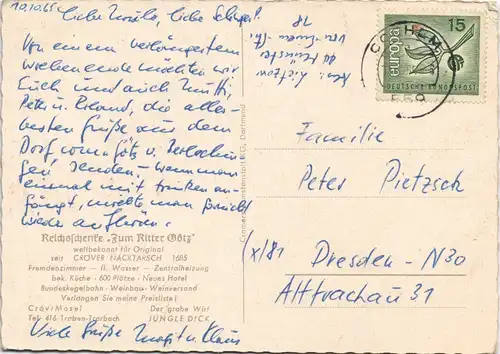 10.10.65
Liebe Ursula, liebe Schwieger!
Von einem verlängerten
Wochenende möchten wir
Euch und auch Mutti,
Peter u. Erland, die aller-
besten Grüße aus dem
Dorf vom Götz v. Berlichin-
gen senden. – Wenn man
einmal mit trinken an-
fängt, möchte man
wieder aufhören.
Reichsschenke „Zum Ritter Götz"
weltbekannt für Original
seit CRÖVER NACKTARSCH 1685
Fremdenzimmer — fl. Wasser — Zentralheizung
bek. Küche · 600 Plätze · Neues Hotel
Bundeskegelbahn · Weinbau · Weinversand
Verlangen Sie meine Preisliste!
Cröv/Mosel Der grobe Wirt
Tel. 416 Traben-Trarbach JUNGLE DICK
Viele Grüße Margit u. Klaus
Cramers Kunstanstalt KG, Dortmund
Abs.: Lietzow
44 Münster
78
COCHEM
15
europa
DEUTSCHE BUNDESPOST
Familie
Peter Pietzsch
(X/81
Dresden - N30
Alttrachau 31